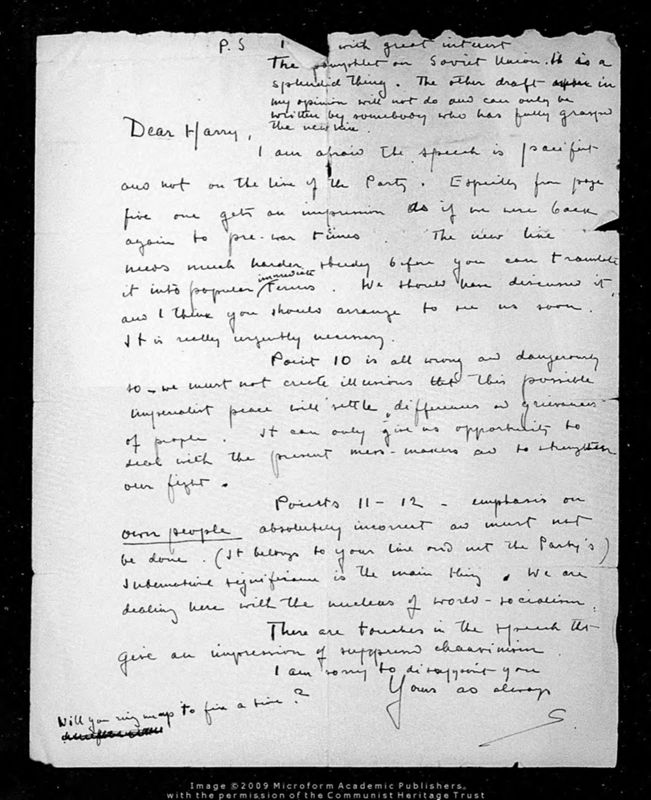 P.S I with great interest
The pamphlet on Soviet Union. It is a
splendid thing. The other draft in
my opinion will not do and can only be
written by somebody who has fully grasped
the new line.
Dear Harry,
I am afraid the speech is pacifist
and not on the line of the Party. Especially from page
five one gets an impression as if we were back
again to pre-war times. The new line
needs much harder study before you can translate
it into popular immediate terms. We should have discussed it,
and I think you should arrange to see us soon.
It is really urgently necessary.
Point 10 is all wrong and dangerously
so - we must not create illusions that this possible
imperialist peace will settle differences and grievances
of people. It can only give us opportunity to
deal with the present mess-makers and to strengthen
our fight.
Points 11-12 - emphasis on
own people absolutely incorrect and must not
be done. (It belongs to your line and not the Party's)
International significance is the main thing. We are
dealing here with the nucleus of world-socialism.
There are touches in the speech that
give an impression of suppressed chauvinism.
I am sorry to disappoint you
Yours as always
S
Will you ring me up to fix a time?
Image ©2009 Microform Academic Publishers,
with the permission of the Communist Heritage Trust